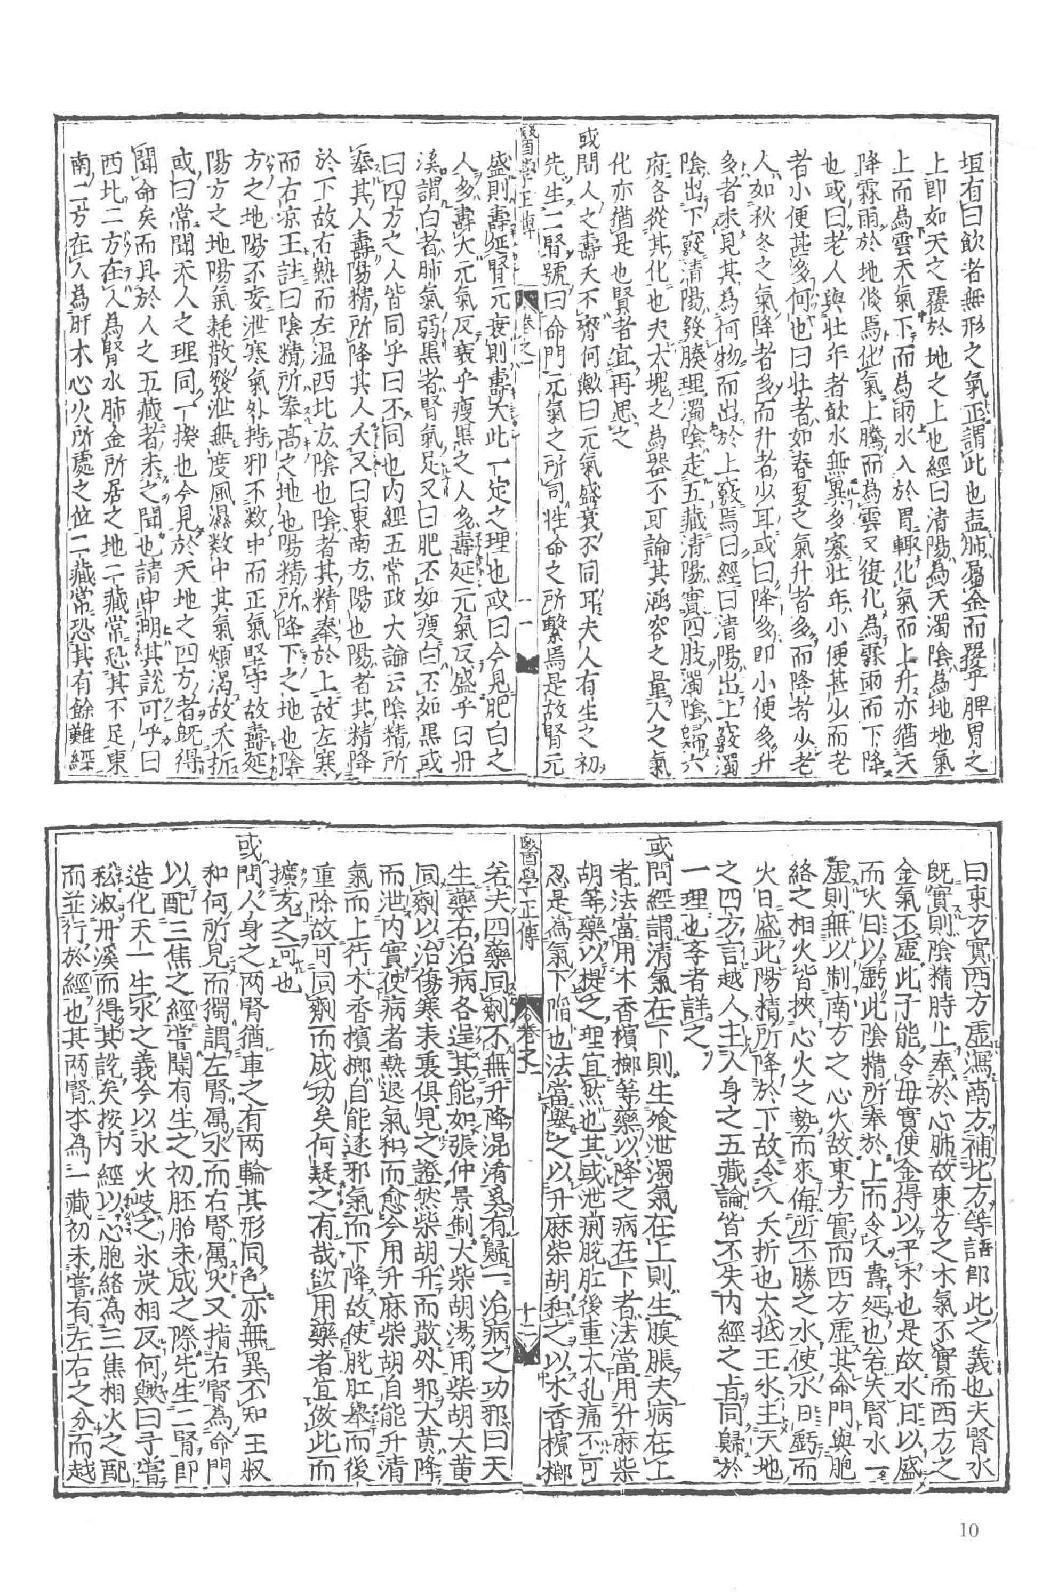 垣有曰飲者無形之氣正謂此也盖肺屬金而覆乎脾胃之
上即如天之覆於地之上也經曰清陽為天濁陰為地地氣
上而為雲天氣下而為雨水入於胃輙化氣而上升亦猶天
降霖雨於地倐焉化氣上騰而為雲又復化為霖雨而下降
也或曰老人與壮年者飲水無異多寡壮年小便甚少而老
者小便甚多何也曰壮者如春夏之氣升者多而降者少老
人如秋冬之氣降者多而升者少耳或曰降多即小便多升
多者未見其為何物而出於上竅焉曰經曰清陽出上竅濁
陰出下竅清陽發腠理濁陰走五藏清陽實四肢濁陰歸六
府各從其化也夫大塊之為器不可論其涵容之量人之氣
化亦猶是也賢者宜再思之
或問人之壽夭不齊何歟曰元氣盛衰不同耳夫人有生之初
先生二腎號曰命門元氣之所司性命之所繫焉是故腎元
醫學正傳 卷之一 十一
盛則壽延腎元衰則壽夭此一定之理也或曰今見肥白之
人多壽夭元氣反衰乎瘦黒之人多壽延元氣反盛乎曰丹
溪謂白者肺氣弱黒者腎氣足又曰肥不如瘦白不如黒或
曰四方之人皆同乎曰不同也内經五常政大論云陰精所
奉其人壽陽精所降其人夭又曰東南方陽也陽者其精降
於下故右熱而左温西北方陰也陰者其精奉於上故左寒
而右凉王註曰陰精所奉高之地也陽精所降下之地也陰
方之地陽不妄泄寒氣外持邪不数中而正氣堅守故壽延
陽方之地陽氣耗散發泄無度風濕数中其氣傾渴故夭折
或曰常聞天人之理同一揆也今見於天地之四方者既得
聞命矣而具於人之五藏者未之聞也請申明其說可乎曰
西北二方在人為腎水肺金所居之地二藏常恐其不足東
南二方在人為肝木心火所處之位二藏常恐其有餘難經
曰東方實西方虚瀉南方補北方等語即此之義也夫腎水
既實則陰精時上奉於心肺故東方之木氣不實而西方之
金氣不虚此子能令母實使金得以平木也是故水日以盛
而火日以虧此陰精所奉於上而令人壽延也若夫腎水一
虚則無以制南方之心火故東方實而西方虚其命門與胞
絡之相火皆挾心火之勢而來侮所不勝之水使水日虧而
火日盛此陽精所降於下故令人夭折也大抵王氷主天地
之四方言越人主人身之五藏論皆不失内經之㫖同歸於
一理也孝者詳之
或問經謂清氣在下則生飱泄濁氣在上則生䐜脹夫病在上
者法當用木香檳榔等藥以降之病在下者法當用升麻柴
胡等藥以提之理宜然也其或泄痢脫肛後重大孔痛不可
忍是為氣下陷也法當舉之以升麻柴胡和之以木香檳榔
醫學正傳 卷之一 十二
若夫四藥同劑不無升降混淆奚有歸一治病之功邪曰天
生藥石治病各逞其能如張仲景制大柴胡湯用柴胡大黄
同劑以治傷寒表裏俱見之證然柴胡升而散外邪大黄降
而泄内實使病者熱退氣和而愈今用升麻柴胡自能升清
氣而上行木香檳榔自能逐邪氣而下降故使脫肛舉而後
重除故可同劑而成功矣何疑之有哉欲用藥者宜倣此而
擴充之可也
或問人身之两腎猶車之有两輪其形同色亦無異不知王叔
和何所見而獨謂左腎属水而右腎属火又指右腎為命門
以配三焦之經嘗聞有生之初胚胎未成之際先生二腎即
造化天一生水之義今以水火歧之氷炭相反何歟曰予嘗
私淑丹溪而得其說矣按内經以心胞絡為三焦相火之配
而並行於經也其两腎本為一藏初未嘗有左右之分而越
10